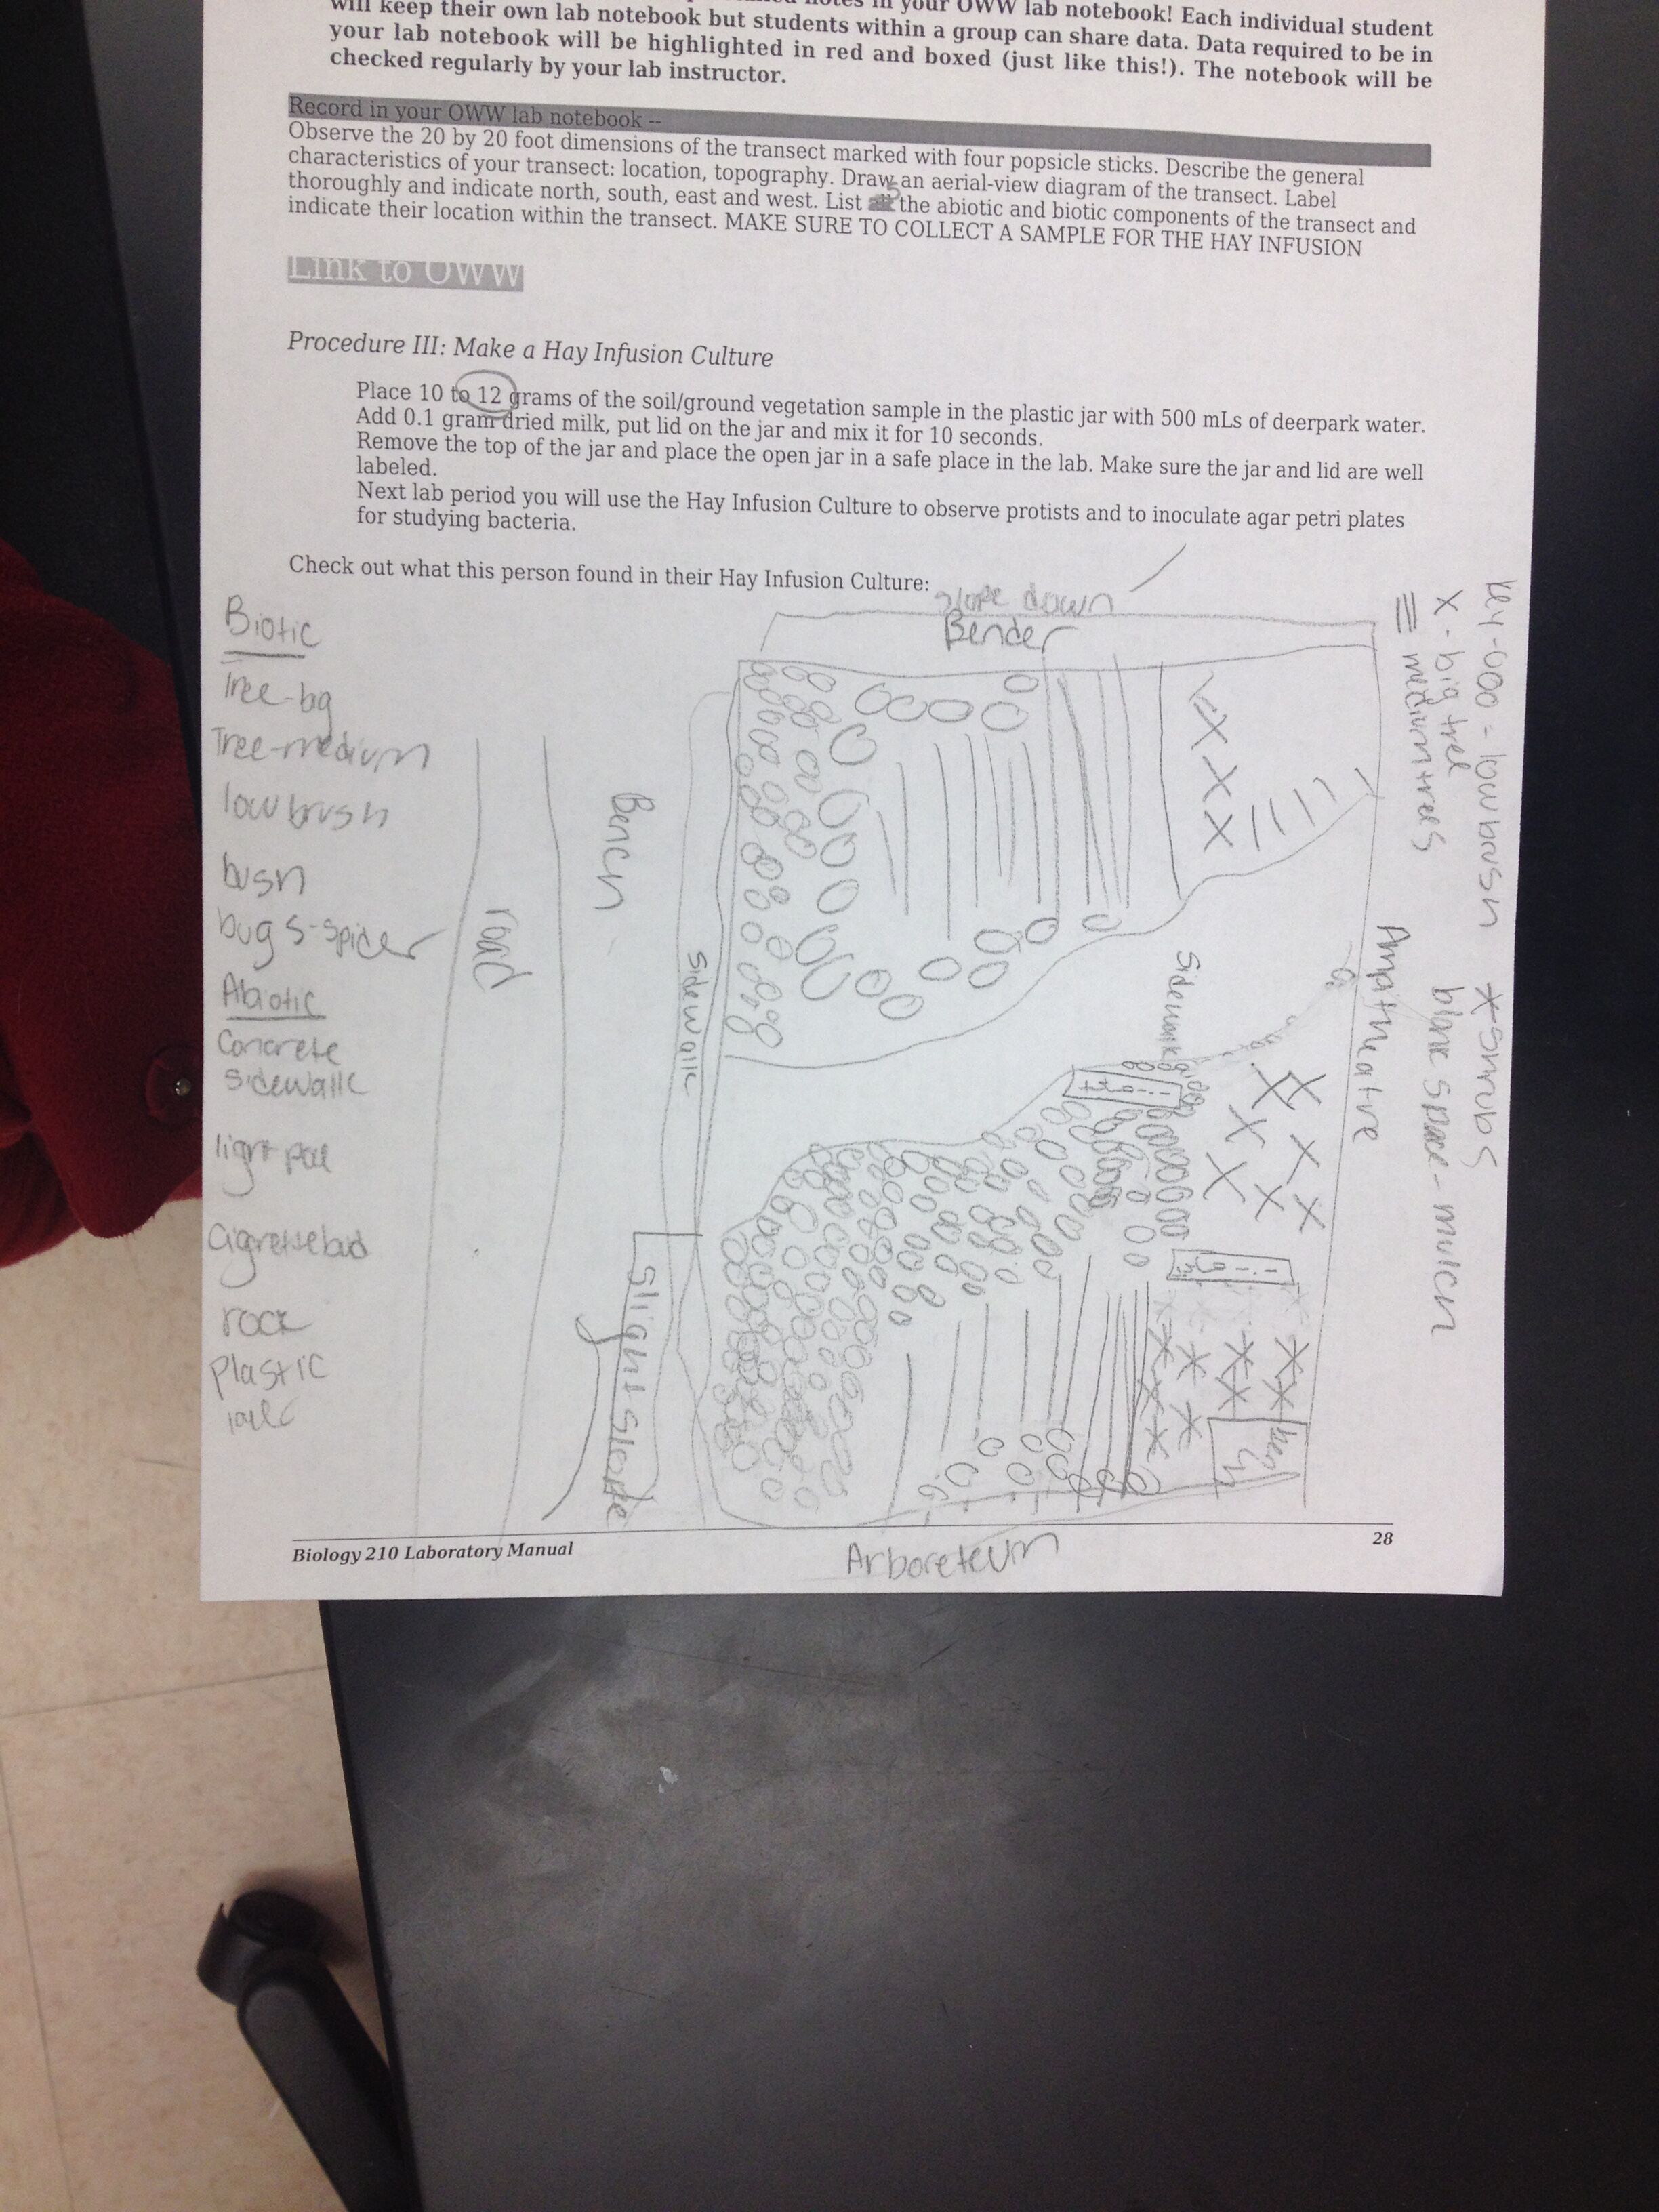 notes in your OWW lab notebook! Each individual student
will keep their own lab notebook but students within a group can share data. Data required to be in
your lab notebook will be highlighted in red and boxed (just like this!). The notebook will be
checked regularly by your lab instructor.
Record in your OWW lab notebook --
Observe the 20 by 20 foot dimensions of the transect marked with four popsicle sticks. Describe the general
characteristics of your transect: location, topography. Draw an aerial-view diagram of the transect. Label
thoroughly and indicate north, south, east and west. List 5 the abiotic and biotic components of the transect and
indicate their location within the transect. MAKE SURE TO COLLECT A SAMPLE FOR THE HAY INFUSION
Link to OWW
Procedure III: Make a Hay Infusion Culture
Place 10 to 12 grams of the soil/ground vegetation sample in the plastic jar with 500 mLs of deerpark water.
Add 0.1 gram dried milk, put lid on the jar and mix it for 10 seconds.
Remove the top of the jar and place the open jar in a safe place in the lab. Make sure the jar and lid are well
labeled.
Next lab period you will use the Hay Infusion Culture to observe protists and to inoculate agar petri plates
for studying bacteria.
Check out what this person found in their Hay Infusion Culture:
slope down
Bender
Biotic
Tree-big
Tree-medium
low brush
bush
bugs-spider
Abiotic
Concrete
sidewalk
light pole
Cigrettebud
rock
Plastic
road
Bench
Sidewalk
Slight slope
Sidewalk
Ampitheatre
key-000 = low bush
* shrubs
X - big tree
blank space - mulch
≡ medium trees
Arboreteum
Biology 210 Laboratory Manual
28